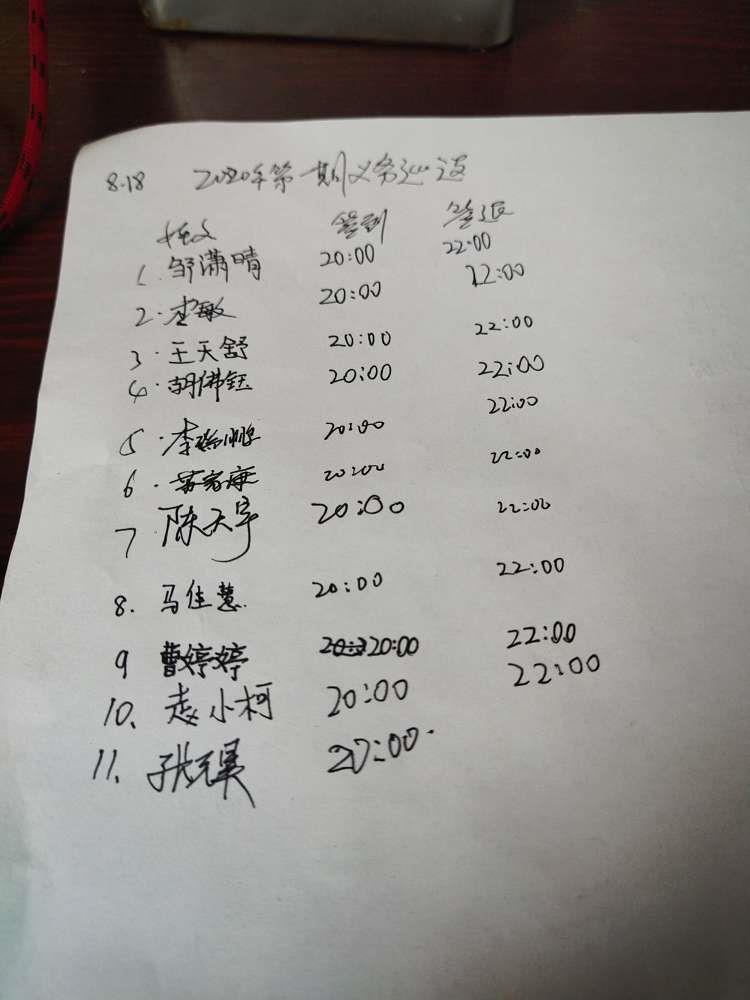 8.18 2020年第一期义务巡逻
姓名 签到 签退
1. 邹潇晴 20:00 22:00
2. 李敏 20:00 22:00
3. 王天舒 20:00 22:00
4. 胡佛钰 20:00 22:00
5. 李 鹏 20:00 22:00
6. 苏家康 20:00 22:00
7 陈天宇 20:00 22:00
8. 马佳慧 20:00 22:00
9 曹婷婷 20:00 22:00
10. 赵小柯 20:00 22:00
11. 张 昊 20:00